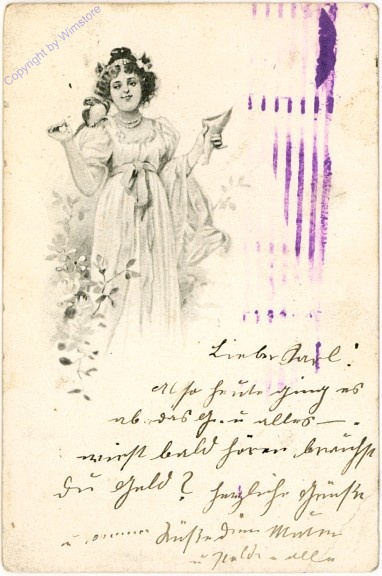 Copyright by Wimstore
Lieber Karl!
Also heute ging es
ab. das G. u alles — .
wirst bald hören brauchst
Du Geld? herzliche Grüße
u Küsse Deine Mutter
u alle